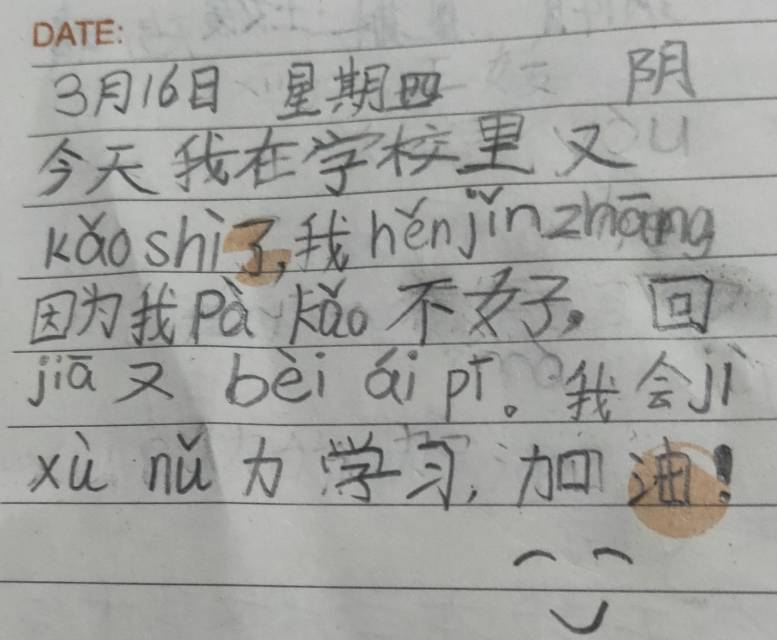 DATE:
3月16日 星期四 阴
今天我在学校里又
kǎo shì了,我hěn jǐn zhāng
因为我Pà kǎo 不好。回
jiā 又 bèi ái pī。我会jì
xù nǔ力学习,加油!